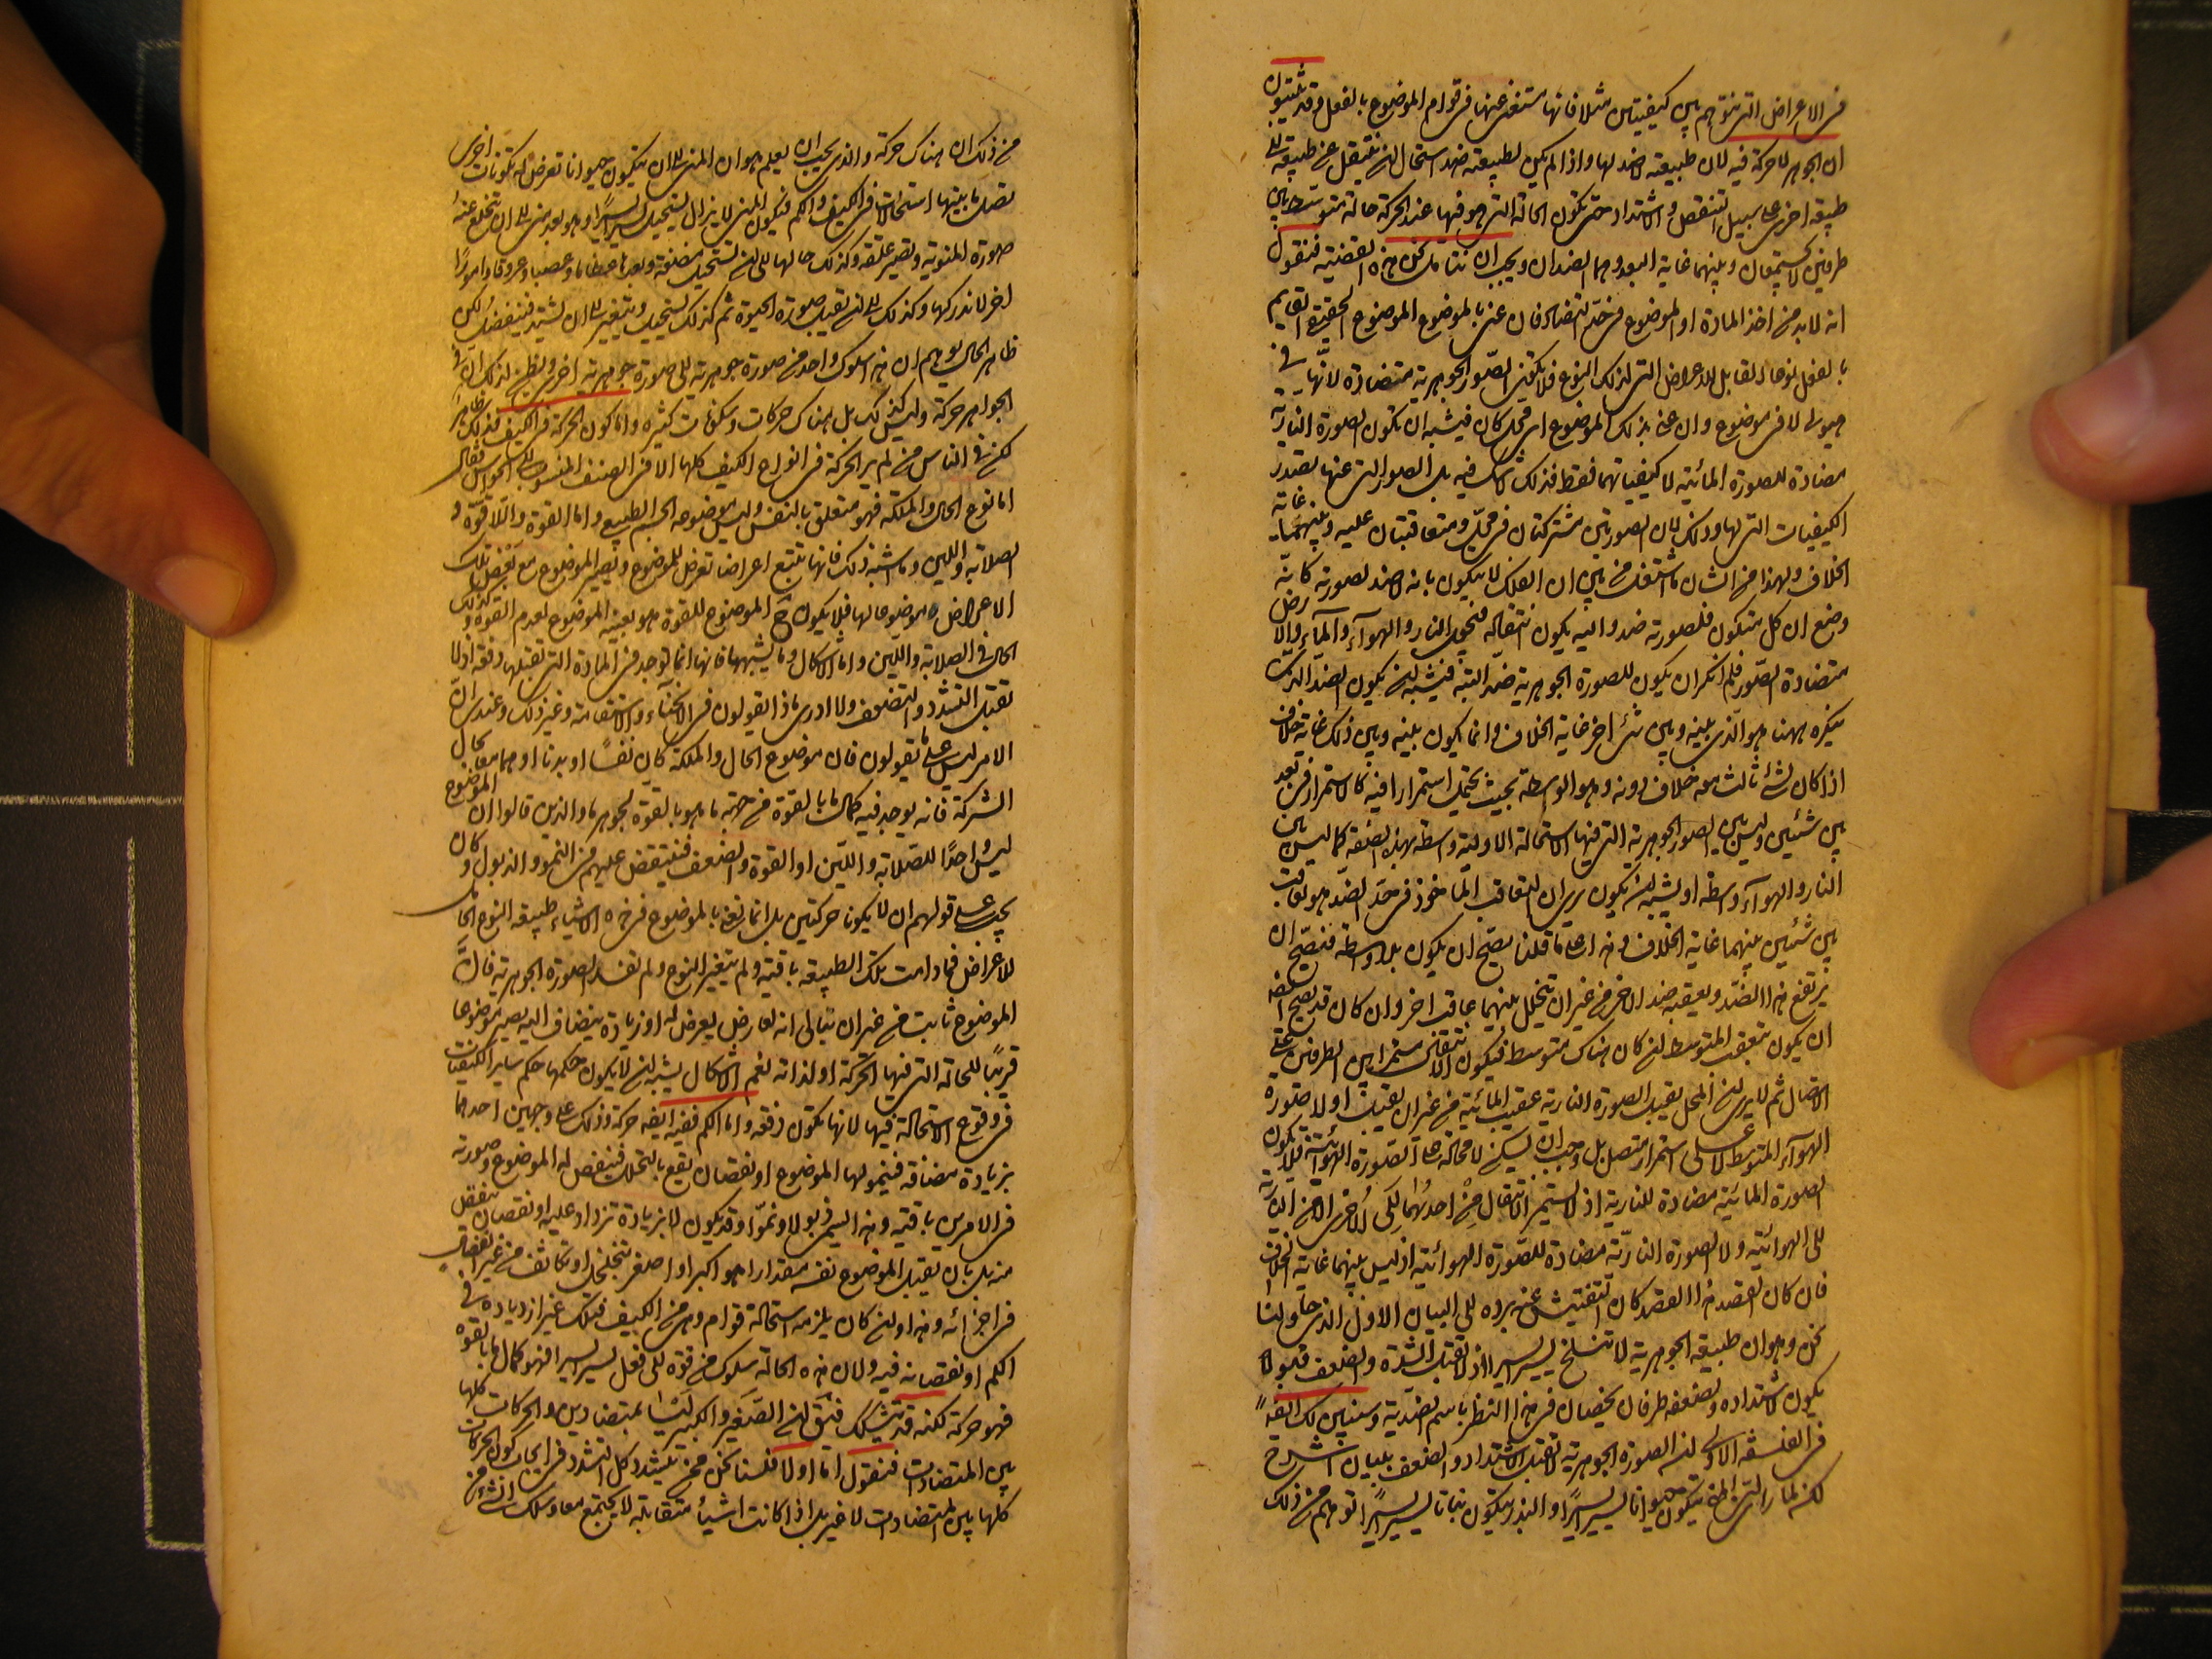 فى الاعراض التى يتوهم بين كيفيتين مثلا فانها مستغنى عنها فى قوام الموضوع بالفعل وقد يثبتون
ان الجوهر لا حركة فيه لان طبيعته لا ضد لها واذا لم يكن لطبيعته ضد استحال ان ينتقل عن طبيعته الى
طبيعة اخرى على سبيل التنقص والاشتداد حتى تكون الحالة التى هو فيها عند الحركة حالة متوسطة بين
طرفين لا يجتمعان وبينهما غاية البعد وهما الضدان ويجب ان نتامل نحن هذه القضية فنقول
انه لا بد من اخذ المادة او الموضوع فى حد التضاد فان عنى بالموضوع الموضوع الحقيقى القايم
بالفعل نوعا القابل للاعراض التى لذلك النوع فلا تكون الصور الجوهرية متضادة لانها فى
هيولى لا فى موضوع وان عنى بذلك الموضوع اى محل كان فيشبه ان تكون الصورة النارية
مضادة للصورة المائية لا كيفياتهما فقط فذلك لا شك فيه بل الصور التى عنها تصدر
الكيفيات التى لها وذلك لان الصورتين مشتركتان فى محل ومتعاقبتان عليه وبينهما غاية
الخلاف ولهذا من الشان ما اشتغل من بين ان الفلك لا يتكون بانه لا ضد لصورته كانه
وضع ان كل متكون فلصورته ضد واليه يكون انتقاله فنحو النار والهوآء والمآء والارض
متضادة الصور فلم انكر ان يكون للصورة الجوهرية ضد البتة فيشبه ان يكون الضد الذى
ينكره ههنا هو الذى بينه وبين شئ اخر غاية الخلاف وانما يكون بينه وبين ذلك غاية خلاف
اذا كان شئ ثالث معه خلاف دونه وهو الواسطة بحيث يحتمل استمرارا فيه كالاستمرار فى بعد
بين شيئين وليس بين الصور الجوهرية التى فيها الاستحالة الاولية واسطة بهذه الصفة كما ليس بين
النار والهوآء واسطة او يشبه ان يكون يرى ان التعاقب المآخوذ فى حد الضد هو تعاقب
بين شيئين بينهما غاية الخلاف وهذا على ما قلنا يصح ان يكون بلا واسطة فيصح ان
يرتفع هذا الضد ويعقبه ضد الاخر من غير ان يتخلل بينهما عاقب اخر وان كان قد يصح ايضا
ان يكون يتعقب المتوسط ان كان هناك متوسط فيكون الانتقال مستمرا بين الطرفين على
الاتصال ثم لا يرى ان المحل يقبل الصورة النارية عقيب المائية من غير ان يقبل اولا صورة
الهوآء المتوسط لا على استمرار متصل بل وجب ان يسكن لا محالة على الصورة الهوائية فلا تكون
الصورة المائية مضادة للنارية اذ لا يستمر الانتقال من احديهما الى الاخرى الا من النارية
الى الهوائية ولا الصورة النارية مضادة للصورة الهوائية اذ ليس بينهما غاية الخلاف
فان كان القصد هذا القصد كان التفتيش عنه يرده الى البيان الاول الذى حاولنا
نحن وهو ان طبيعة الجوهرية لا تنسلخ يسيرا يسيرا اذ لا تقبل الشدة والضعف قبولا
يكون لاشتداده وضعفه طرفان يخصان فى هذا النظر باسم الضدية وسنبين لك ايضا
فى الفلسفة الاولى ان الصورة الجوهرية لا تقبل الاشتداد والضعف ببيان اشرح
لكنه لما راى المنى يتكون حيوانا يسيرا يسيرا والبذر يتكون نباتا يسيرا يسيرا توهم من ذلك
من ذلك ان هناك حركة والذى يجب ان يعلم هو ان المنى الى ان يتكون حيوانا تعرض له تكونات اخرى
تصل ما بينها استحالات فى الكيف والكم فيكون المنى لا يزال يستحيل يسيرا يسيرا وهو بعد منى الى ان تنخلع عنه
صورة المنوية وتصير علقة وكذلك حالها الى ان تستحيل مضغة وبعدها عظاما وعصبا وعروقا وامورا
اخر لا ندركها وكذلك الى ان تقبل صورة الحيوة ثم كذلك يستحيل ويتغير الى ان يشتد فينفصل لكن
ظاهر الحال يوهم ان هذا سلوك واحد من صورة جوهرية الى صورة جوهرية اخرى ويظن لذلك ان فى
الجواهر حركة وليس كذلك بل هناك حركات وسكونات كثيرة واما كون الحركة فى الكيف فذلك ظاهر
لكن فى الناس من لم ير الحركة فى انواع الكيف كلها الا فى الصنف المنسوب الى الحواس فقال
اما نوع الحال والملكة فهو متعلق بالنفس وليس موضوعه الجسم الطبيعى واما القوة واللاقوة و
الصلابة واللين وما اشبه ذلك فانها تتبع اعراضا تعرض للموضوع ويصير الموضوع مع بعض تلك
الاعراض موضوعا لها فلا يكون ح الموضوع للقوة هو بعينه الموضوع لعدم القوة وكذلك
الحال فى الصلابة واللين واما الاشكال وما يشبهها فانها انما توجد فى المادة التى تقبلها دفعة اذ لا
تقبل التشدد والتضعف ولا ادرى ماذا يقولون فى الانحناء والاستقامة وغير ذلك وعندى ان
الامر ليس على ما يقولون فان موضوع الحال والملكة كان نفسا او بدنا او هما معا بحال
الشركة فانه يوجد فيه كمال ما بالقوة من جهة ما هو بالقوة لجوهر ما والذين قالوا ان الموضوع
ليس واحدا للصلابة واللين او القوة والضعف فينتقض عليهم فى النمو والذبول وكان
يجب على قولهم ان لا يكونا حركتين بل انما نعنى بالموضوع فى هذه الاشياء طبيعة النوع الحاملة
للاعراض فما دامت تلك الطبيعة باقية ولم يتغير النوع ولم تفسد الصورة الجوهرية فان
الموضوع ثابت من غير ان نبالى انه لعارض يعرض له او زيادة ينضاف اليه يصير موضوعا
قريبا للحالة التى فيها الحركة او لذاته نعم الاشكال يشبه ان لا يكون حكمها حكم ساير الكيفيات
فى وقوع الاستحالة فيها لانها تكون دفعة واما الكم ففيه ايضا حركة وذلك على وجهين احدهما
بزيادة مضافة فينمو لها الموضوع او نقصان يقع بالتحلل فينقص له الموضوع وصورته
فى الامرين باقية وهذا يسمى ذبولا ونموا وقد يكون لا بزيادة تزداد عليه او نقصان ينقص
منه بل بان يقبل الموضوع نفسه مقدارا هو اكبر او اصغر بتخلخل او تكاثف من غير انفصال
فى اجزائه وهذا وان كان يلزمه استحالة قوام وهى من الكيف فتلك غير ازدياده فى
الكم او نقصانه فيه ولان هذه الحالة سلوك من قوة الى فعل يسيرا يسيرا فهو كمال ما بالقوة
فهو حركة لكنه قد يتشكك فيقال ان الصغير والكبير ليسا بمتضادين والحركات كلها
بين المتضادات فنقول اما اولا فلسنا نحن ممن يتشدد كل التشدد فى ايجاب كون الحركات
كلها بين المتضادات لا غير بل اذا كانت اشياء متقابلة لا يجتمع معا وسلك الشئ من